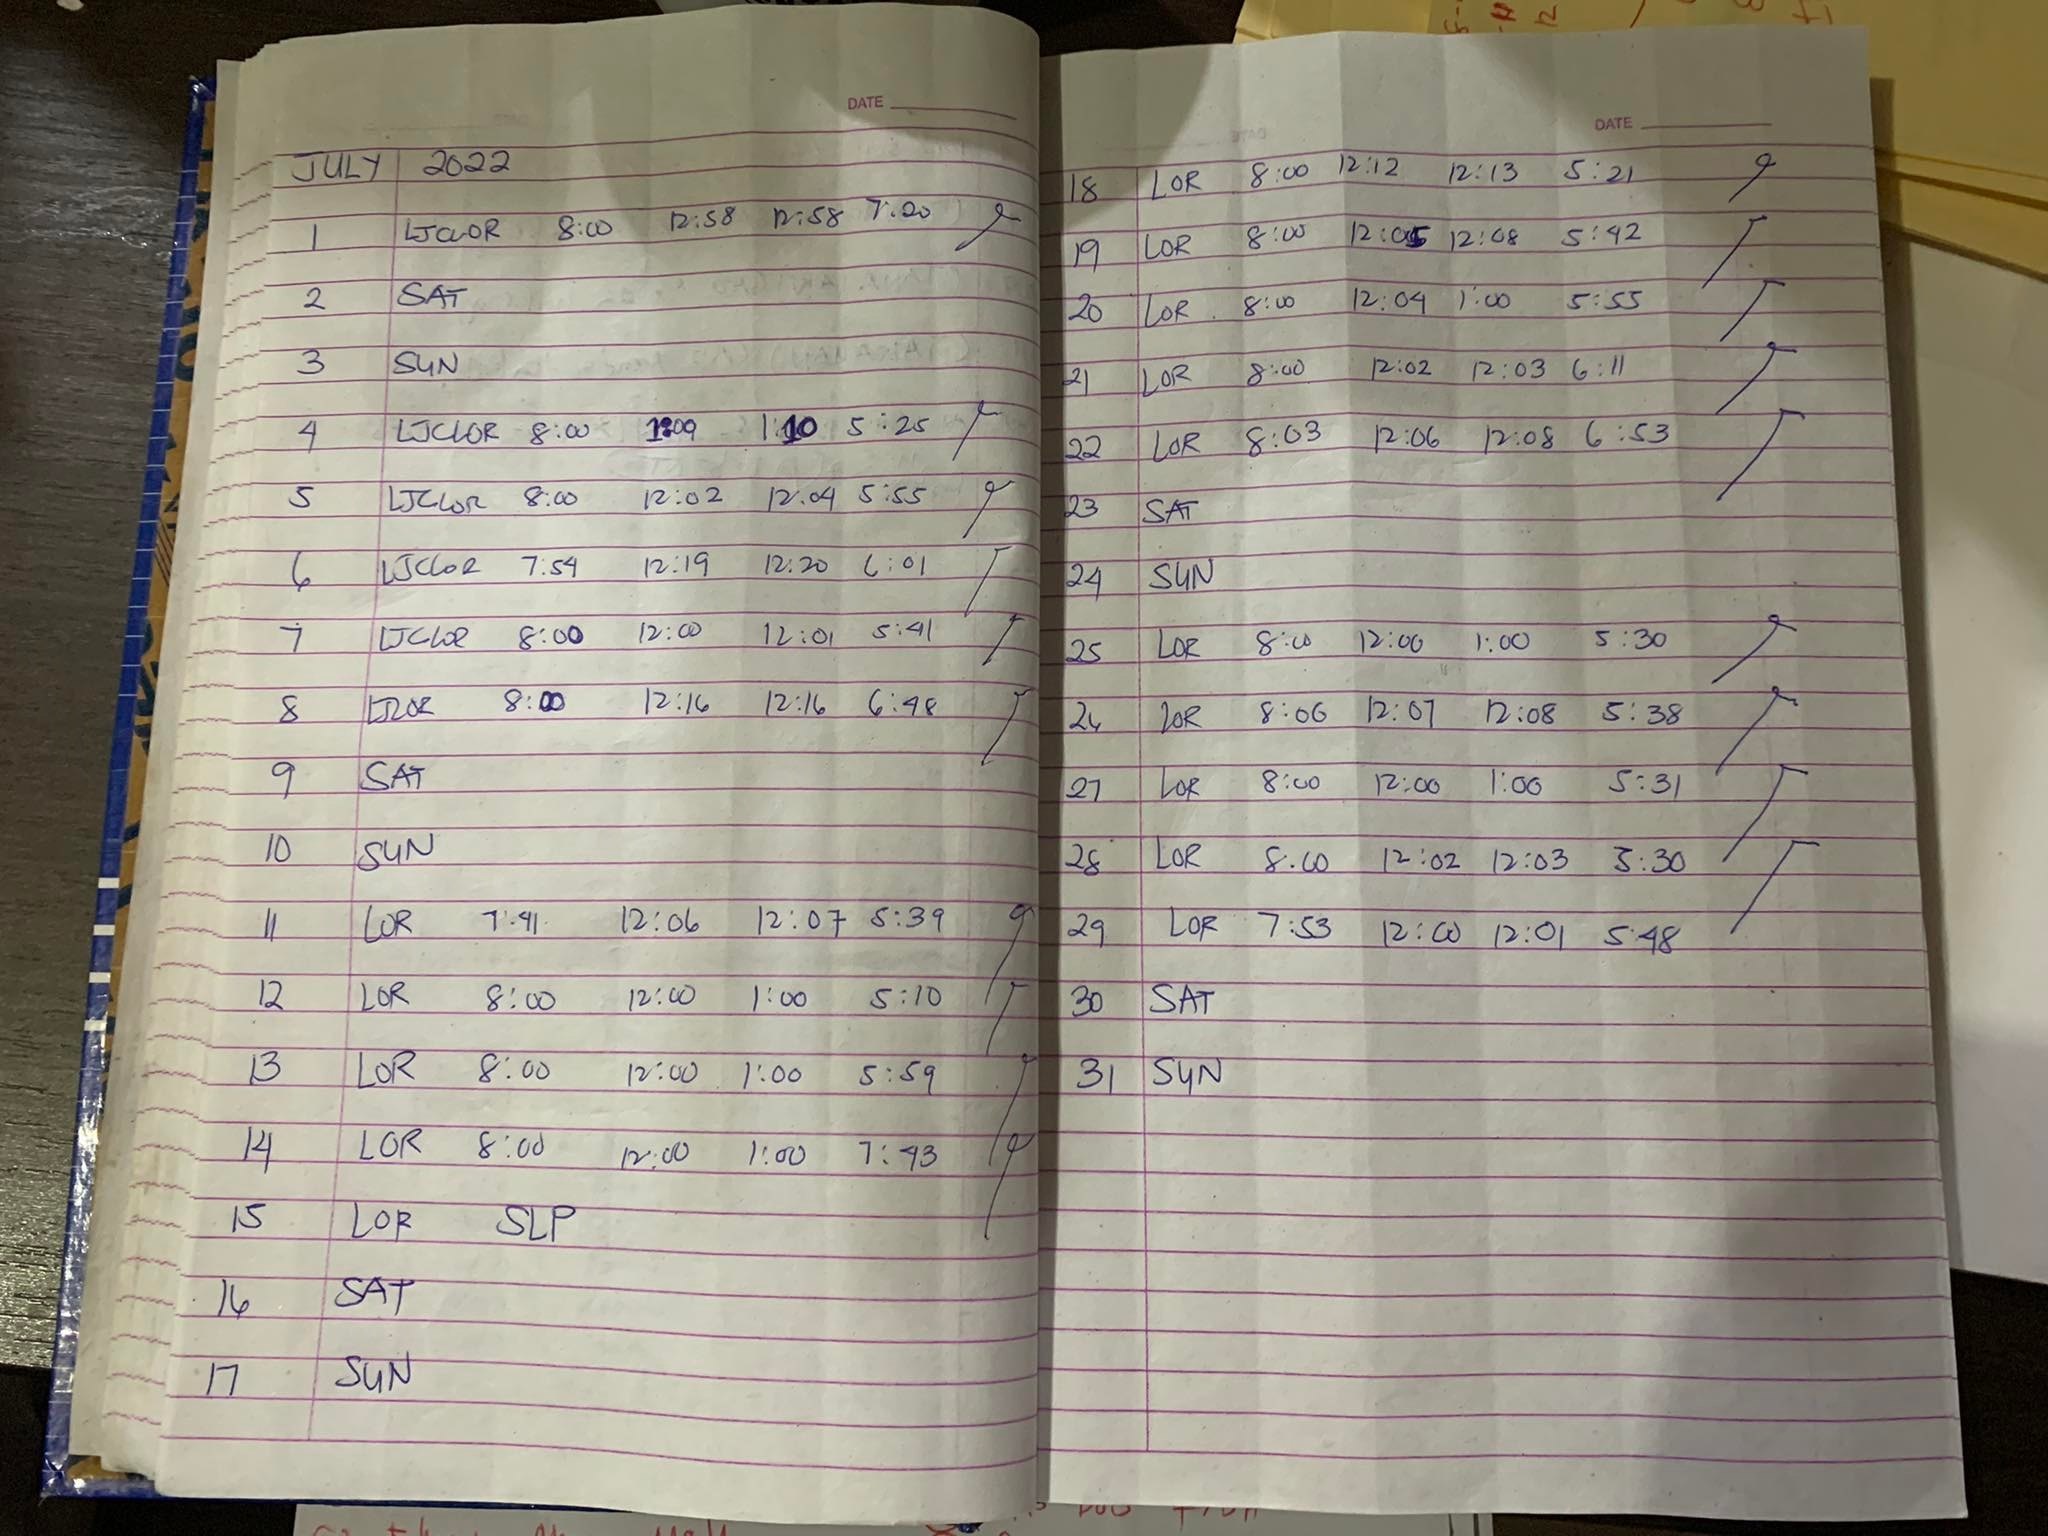 DATE
JULY 2022
1 LJCLOR 8:00 12:58 12:58 7:20
2 SAT
3 SUN
4 LJCLOR 8:00 1:09 1:10 5:25
5 LJCLOR 8:00 12:02 12:04 5:55
6 LJCLOR 7:54 12:19 12:20 6:01
7 LJCLOR 8:00 12:00 12:01 5:41
8 8:00 12:16 12:16 6:48
9 SAT
10 SUN
11 LOR 7:41 12:06 12:07 5:39
12 LOR 8:00 12:00 1:00 5:10
13 LOR 8:00 12:00 1:00 5:59
14 LOR 8:00 12:00 1:00 7:43
15 LOR SLP
16 SAT
17 SUN
DATE
18 LOR 8:00 12:12 12:13 5:21
19 LOR 8:00 12:08 5:42
20 LOR 8:00 12:04 1:00 5:55
21 LOR 8:00 12:02 12:03 6:11
22 LOR 8:03 12:06 12:08 6:53
23 SAT
24 SUN
25 LOR 8:00 12:00 1:00 5:30
26 LOR 8:06 12:07 12:08 5:38
27 LOR 8:00 12:00 1:00 5:31
28 LOR 8:00 12:02 12:03 5:30
29 LOR 7:53 12:00 12:01 5:48
30 SAT
31 SUN